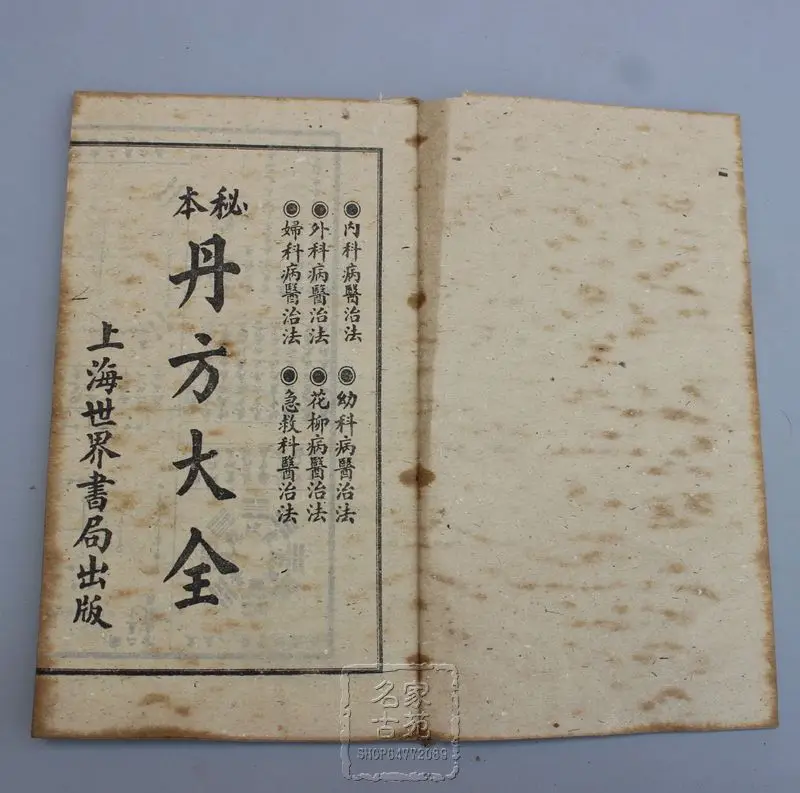 ◉内科病醫治法
◉幼科病醫治法
◉外科病醫治法
◉花柳病醫治法
◉婦科病醫治法
◉急救科醫治法
秘本
丹方大全
上海世界書局出版
名家
古苑
SHOP64772089